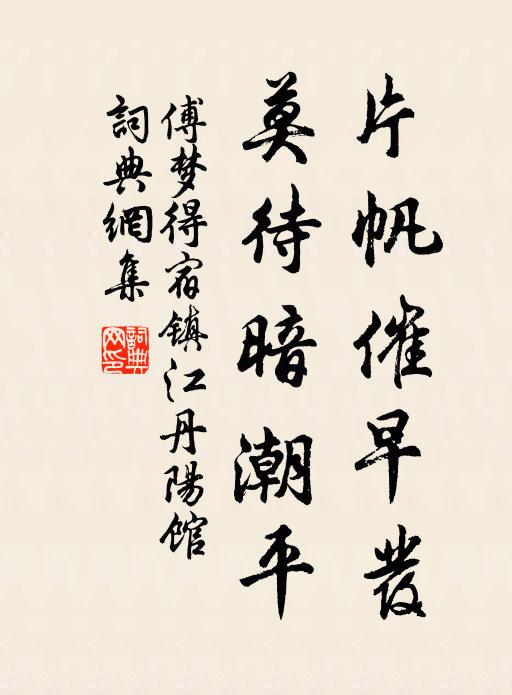 片帆催早發
莫待暗潮平
傅梦得宿镇江丹陽館
詞典網集
詞典网印